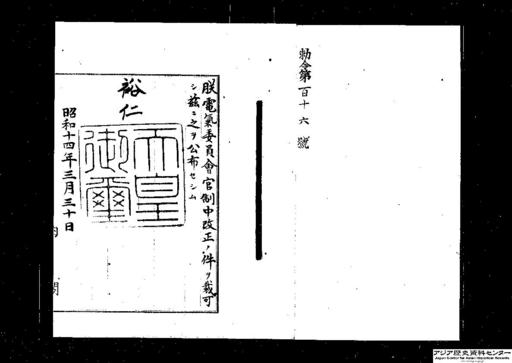 勅令第百十六號
朕電氣委員會官制中改正ノ件ヲ裁可
シ茲ニ之ヲ公布セシム
裕仁
天皇
御璽
昭和十四年三月三十日
内閣
アジア歴史資料センター
Japan Center for Asian Historical Records